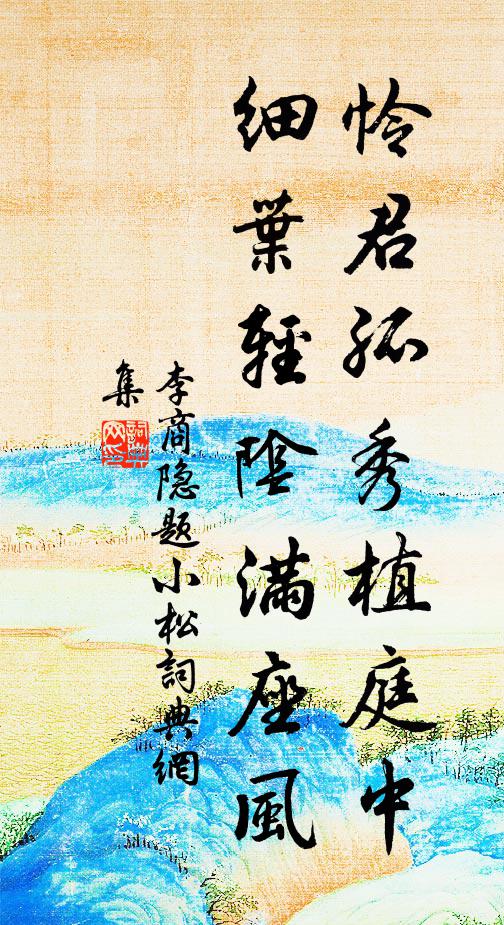 怜君孤秀植庭中
細葉輕陰滿座風
李商隐题小松詞典網
集